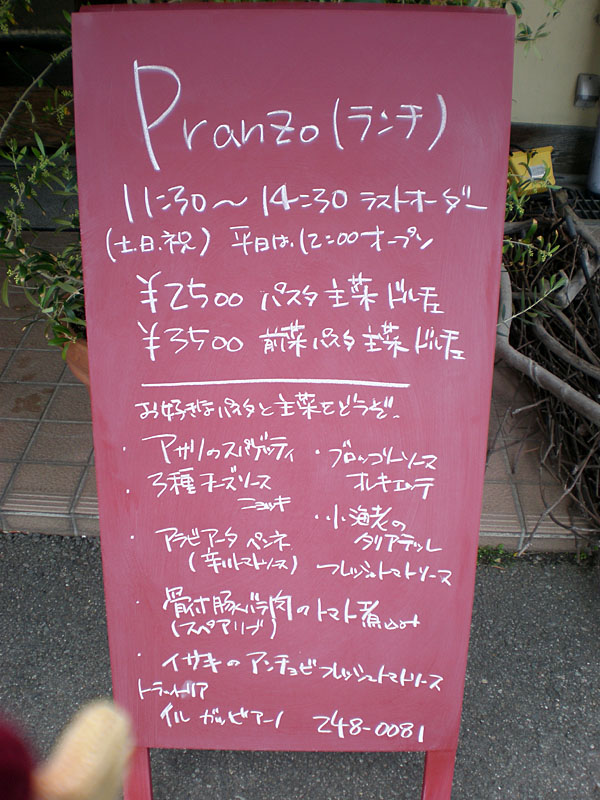 Pranzo(ランチ)
11:30〜14:30 ラストオーダー
(土.日.祝) 平日は.12:00オープン
¥2500 パスタ 主菜 ドルチェ
¥3500 前菜 パスタ 主菜 ドルチェ
お好きなパスタと主菜をどうぞ.
・アサリのスパゲッティ
・3種チーズソース
ニョッキ
・アラビアータ ペンネ
(辛いトマトソース)
・ブロッコリーソース
オレキエッテ
・小海老の
タリアテッレ
フレッシュトマトソース
・骨付豚バラ肉のトマト煮込み
(スペアリブ)
・イサキのアンチョビフレッシュトマトソース
トラットリア
イル ガッビアーノ 248-0081